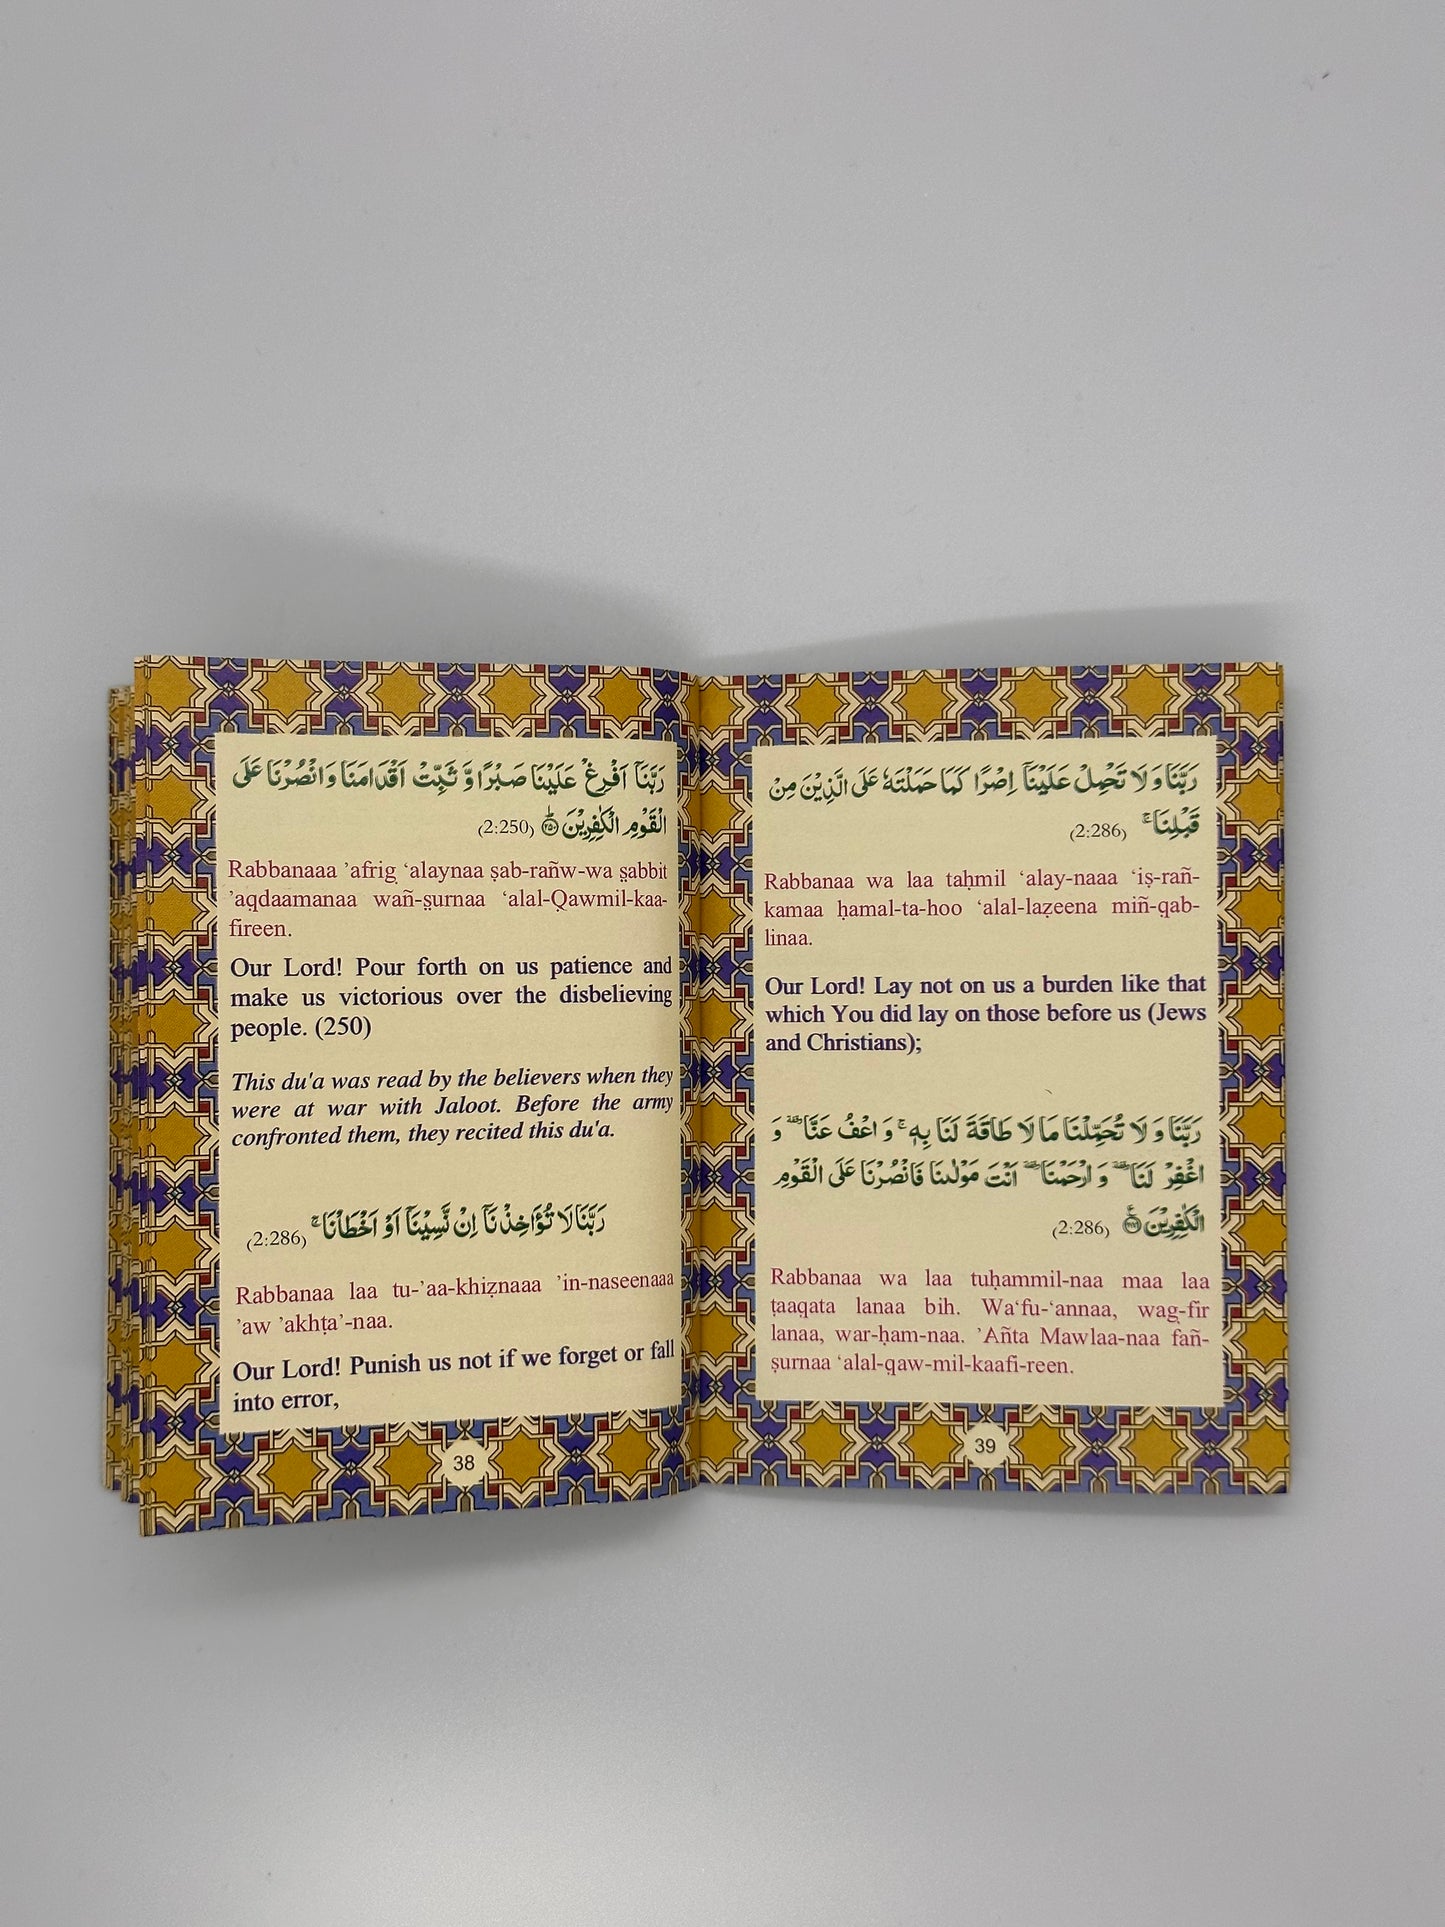 رَبَّنَآ اَفْرِغْ عَلَيْنَا صَبْرًا وَّ ثَبِّتْ اَقْدَامَنَا وَانْصُرْنَا عَلَى
الْقَوْمِ الْكٰفِرِيْنَ ۲۵۰ (2:250)
Rabbanaaa ’afrig ‘alaynaa ṣab-rañw-wa s̤abbit
’aqdaamanaa wañ-ṣurnaa ‘alal-Qawmil-kaa-
fireen.
Our Lord! Pour forth on us patience and
make us victorious over the disbelieving
people. (250)
This du'a was read by the believers when they
were at war with Jaloot. Before the army
confronted them, they recited this du'a.
رَبَّنَا لَا تُؤَاخِذْنَآ اِنْ نَّسِيْنَآ اَوْ اَخْطَاْنَا ۚ (2:286)
Rabbanaa laa tu-’aa-khiẓnaaa ’in-naseenaaa
’aw ’akhṭa’-naa.
Our Lord! Punish us not if we forget or fall
into error,
38
رَبَّنَا وَ لَا تَحْمِلْ عَلَيْنَآ اِصْرًا كَمَا حَمَلْتَهٗ عَلَى الَّذِيْنَ مِنْ
قَبْلِنَا ۚ (2:286)
Rabbanaa wa laa taḥmil ‘alay-naaa ‘iṣ-rañ-
kamaa ḥamal-ta-hoo ‘alal-laẓeena miñ-qab-
linaa.
Our Lord! Lay not on us a burden like that
which You did lay on those before us (Jews
and Christians);
رَبَّنَا وَ لَا تُحَمِّلْنَا مَا لَا طَاقَةَ لَنَا بِهٖ ۚ وَ اعْفُ عَنَّا ۥ وَ
اغْفِرْ لَنَا ۥ وَ ارْحَمْنَا ۥ اَنْتَ مَوْلٰىنَا فَانْصُرْنَا عَلَى الْقَوْمِ
الْكٰفِرِيْنَ ۲۸۶ (2:286)
Rabbanaa wa laa tuḥammil-naa maa laa
ṭaaqata lanaa bih. Wa‘fu-‘annaa, wag-fir
lanaa, war-ḥam-naa. ’Añta Mawlaa-naa fañ-
ṣurnaa ‘alal-qaw-mil-kaafi-reen.
39